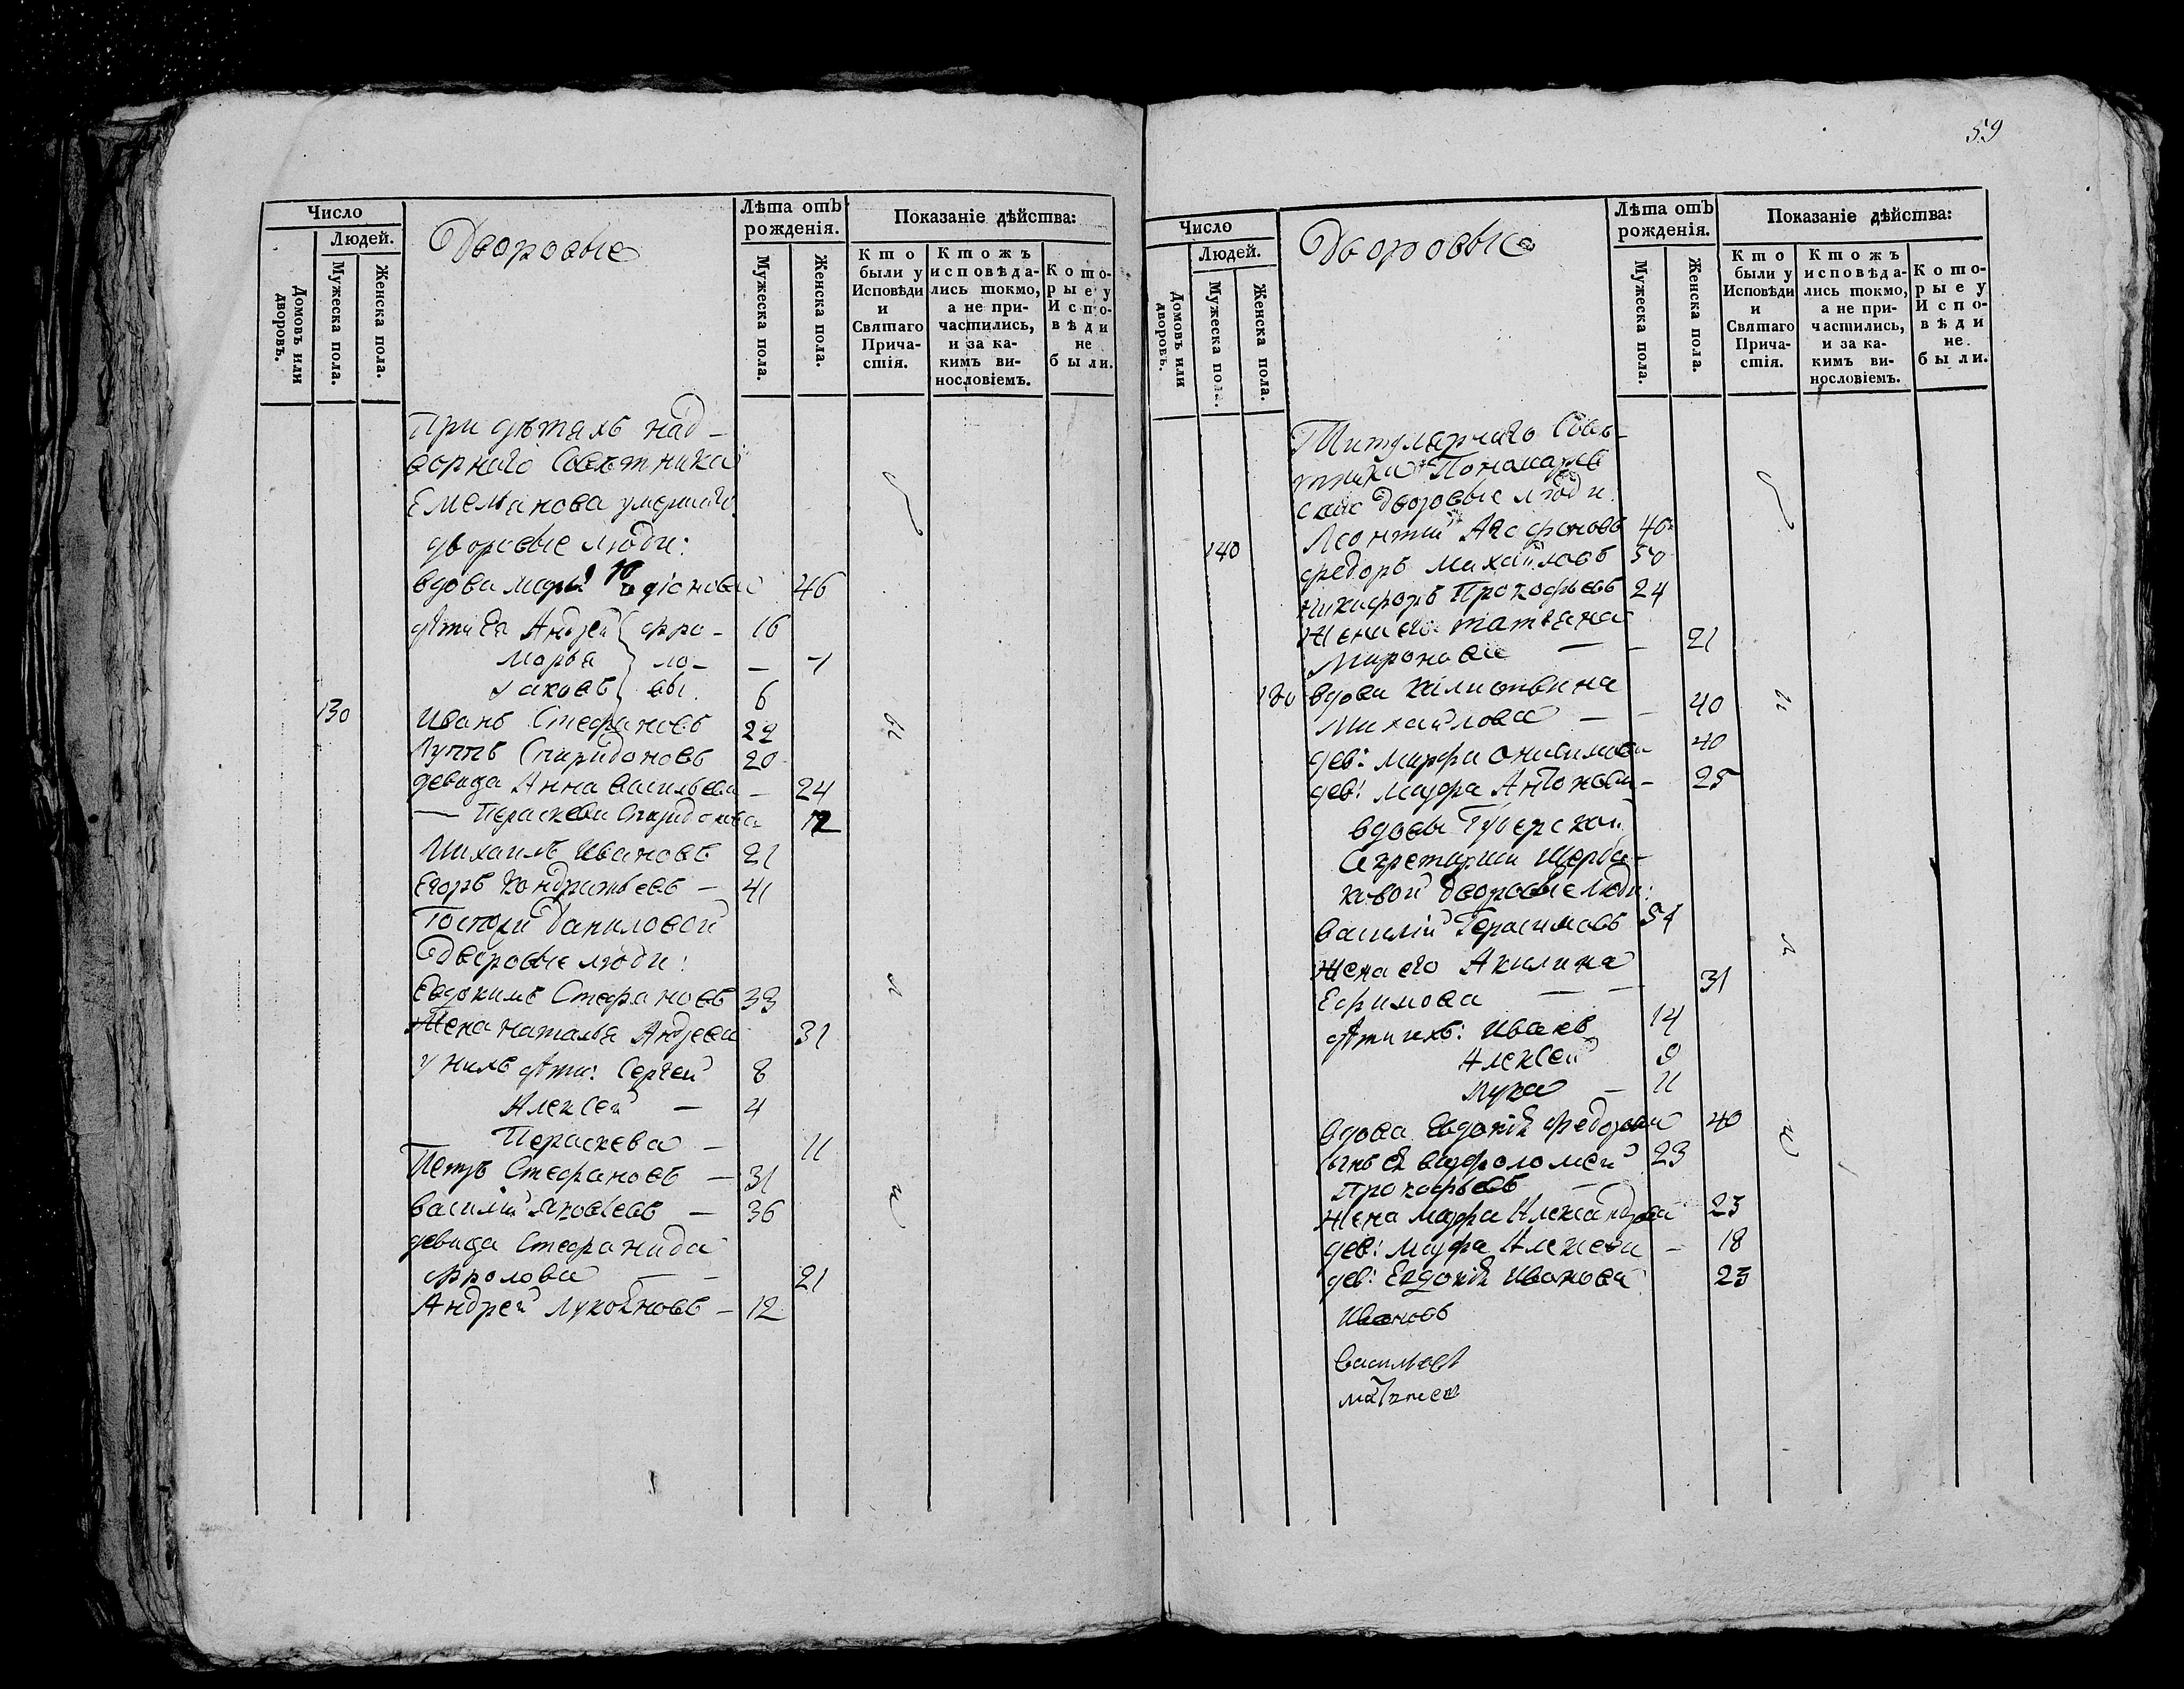 59
Число
Людей.
Домовъ или дворовъ.
Мужеска пола.
Женска пола.
Дворовые
Лѣта отъ рожденія.
Мужеска пола.
Женска пола.
Показаніе дѣйства:
Кто были у Исповѣди и Святаго Прича-стія.
Ктожъ исповѣда-лись токмо, а не при-частились, и за ка-кимъ ви-нословіемъ.
Кото-рые у Испо-вѣди не были.
При дѣтяхъ над-
ворнаго Советника
Емельянова умершаго
дворовые люди:
вдова Марья Родіонова 46
дѣти ея Андрей фро- 16
Марья ло- — 7
Яковъ вы. 6
130 Иванъ Стефановъ 22
Луппъ Спиридоновъ 20
девица Анна Васильева — 24
— Параскева Спиридонова 12
Михаилъ Ивановъ 21
Егоръ Кондратьевъ — 41
Госпожи Даниловой
Дворовые люди:
Евдокимъ Стефановъ 33
Жена Наталья Андреева 31
у нихъ дѣти: Сергей 8
Алексей — 4
Параскева — 11
Петръ Стефановъ — 31
Василий Яковлевъ — 36
девица Стефанида
Фролова — — 21
Андрей Лукояновъ — 12
Число
Людей.
Домовъ или дворовъ.
Мужеска пола.
Женска пола.
Дворовые
Лѣта отъ рожденія.
Мужеска пола.
Женска пола.
Показаніе дѣйства:
Кто были у Исповѣди и Святаго Прича-стія.
Ктожъ исповѣда-лись токмо, а не при-частились, и за ка-кимъ ви-нословіемъ.
Кото-рые у Испо-вѣди не были.
Титулярнаго Совѣ-
тника Пономарев
дворовые люди.
140 Леонтий Агафоновъ 40
Федоръ Михайловъ 50
Никифоръ Прокофьевъ 24
Жена его Татьяна
Миронова — — 21
130 вдова Калиствина
Михайлова — — 40
дев: Марфа Онисимова 40
дев: Марфа Антонова — 25
вдовы Губерской
Секретарши Щерба-
ковой дворовые люди:
Василий Герасимовъ 54
Жена его Акилина
Ефимова — — 31
дѣти ихъ: Иванъ 14
Алексей 9
Лука — 11
вдова Евдокія Федорова 40
сынъ ея Варфоломей 23
Прокофьевъ —
Жена Марфа Александрова 23
дев: Марфа Алексеева — 18
дев: Евдокія Иванова 23
Ивановъ
Васильев